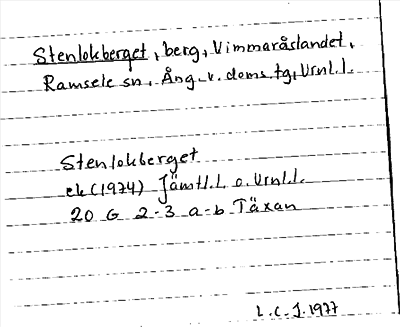 Stenlokberget, berg, Vimmaråslandet,
Ramsele sn, Ång. v. doms. tg, Vrnl.l.
Stenlokberget
ek (1974) Jämtl.l. o. Vrnl.l.
20 G 2-3 a-b Täxan
L.C.J. 1977